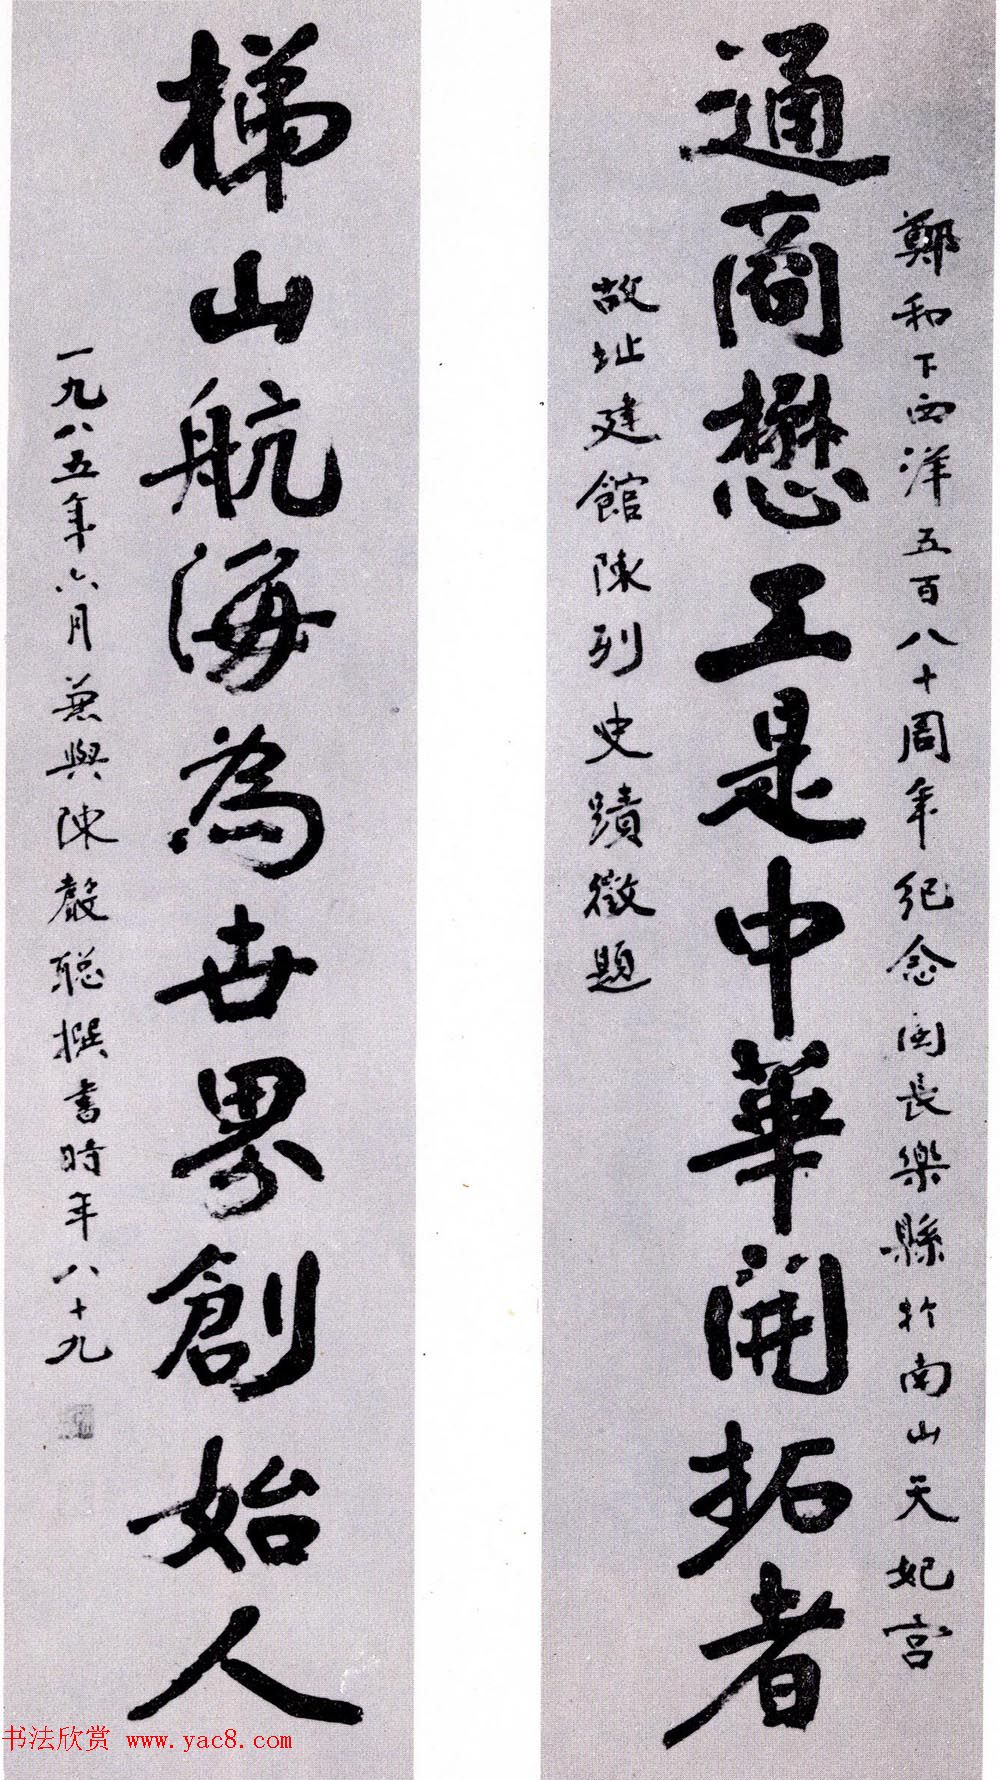 鄭和下西洋五百八十周年纪念闽長樂縣於南山天妃宫
通商懋工是中華開拓者
故址建館陳列史蹟徵題
梯山航海為世界創始人
一九八五年六月兼與陳聲聪撰書時年八十九
书法欣赏 www.yac8.com